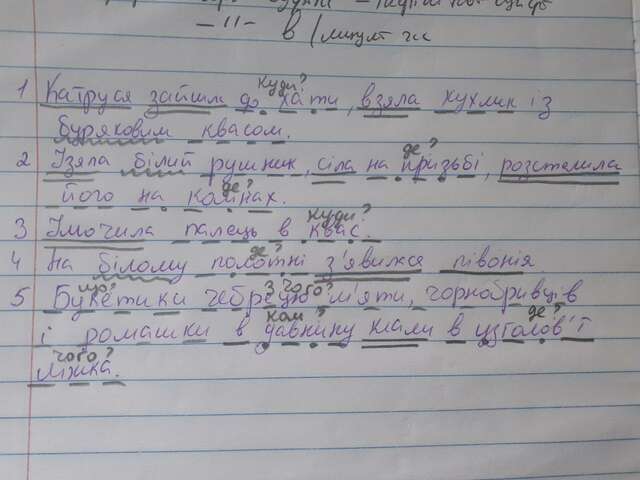 – 11 – в
куди?
1 Катруся зайшла до хати, взяла кухлик із
буряковим квасом.
де?
2 Узяла білий рушник, сіла на призьбі, розстелила
де?
його на колінах.
куди?
3 Умочила палець в квас.
де?
4 На білому полотні з'явилася півонія
що? з чого?
5 Букетики чебрецю м'яти, чорнобривців
коли? де?
і ромашки в давнину клали в узголов'ї
чого?
ліжка.